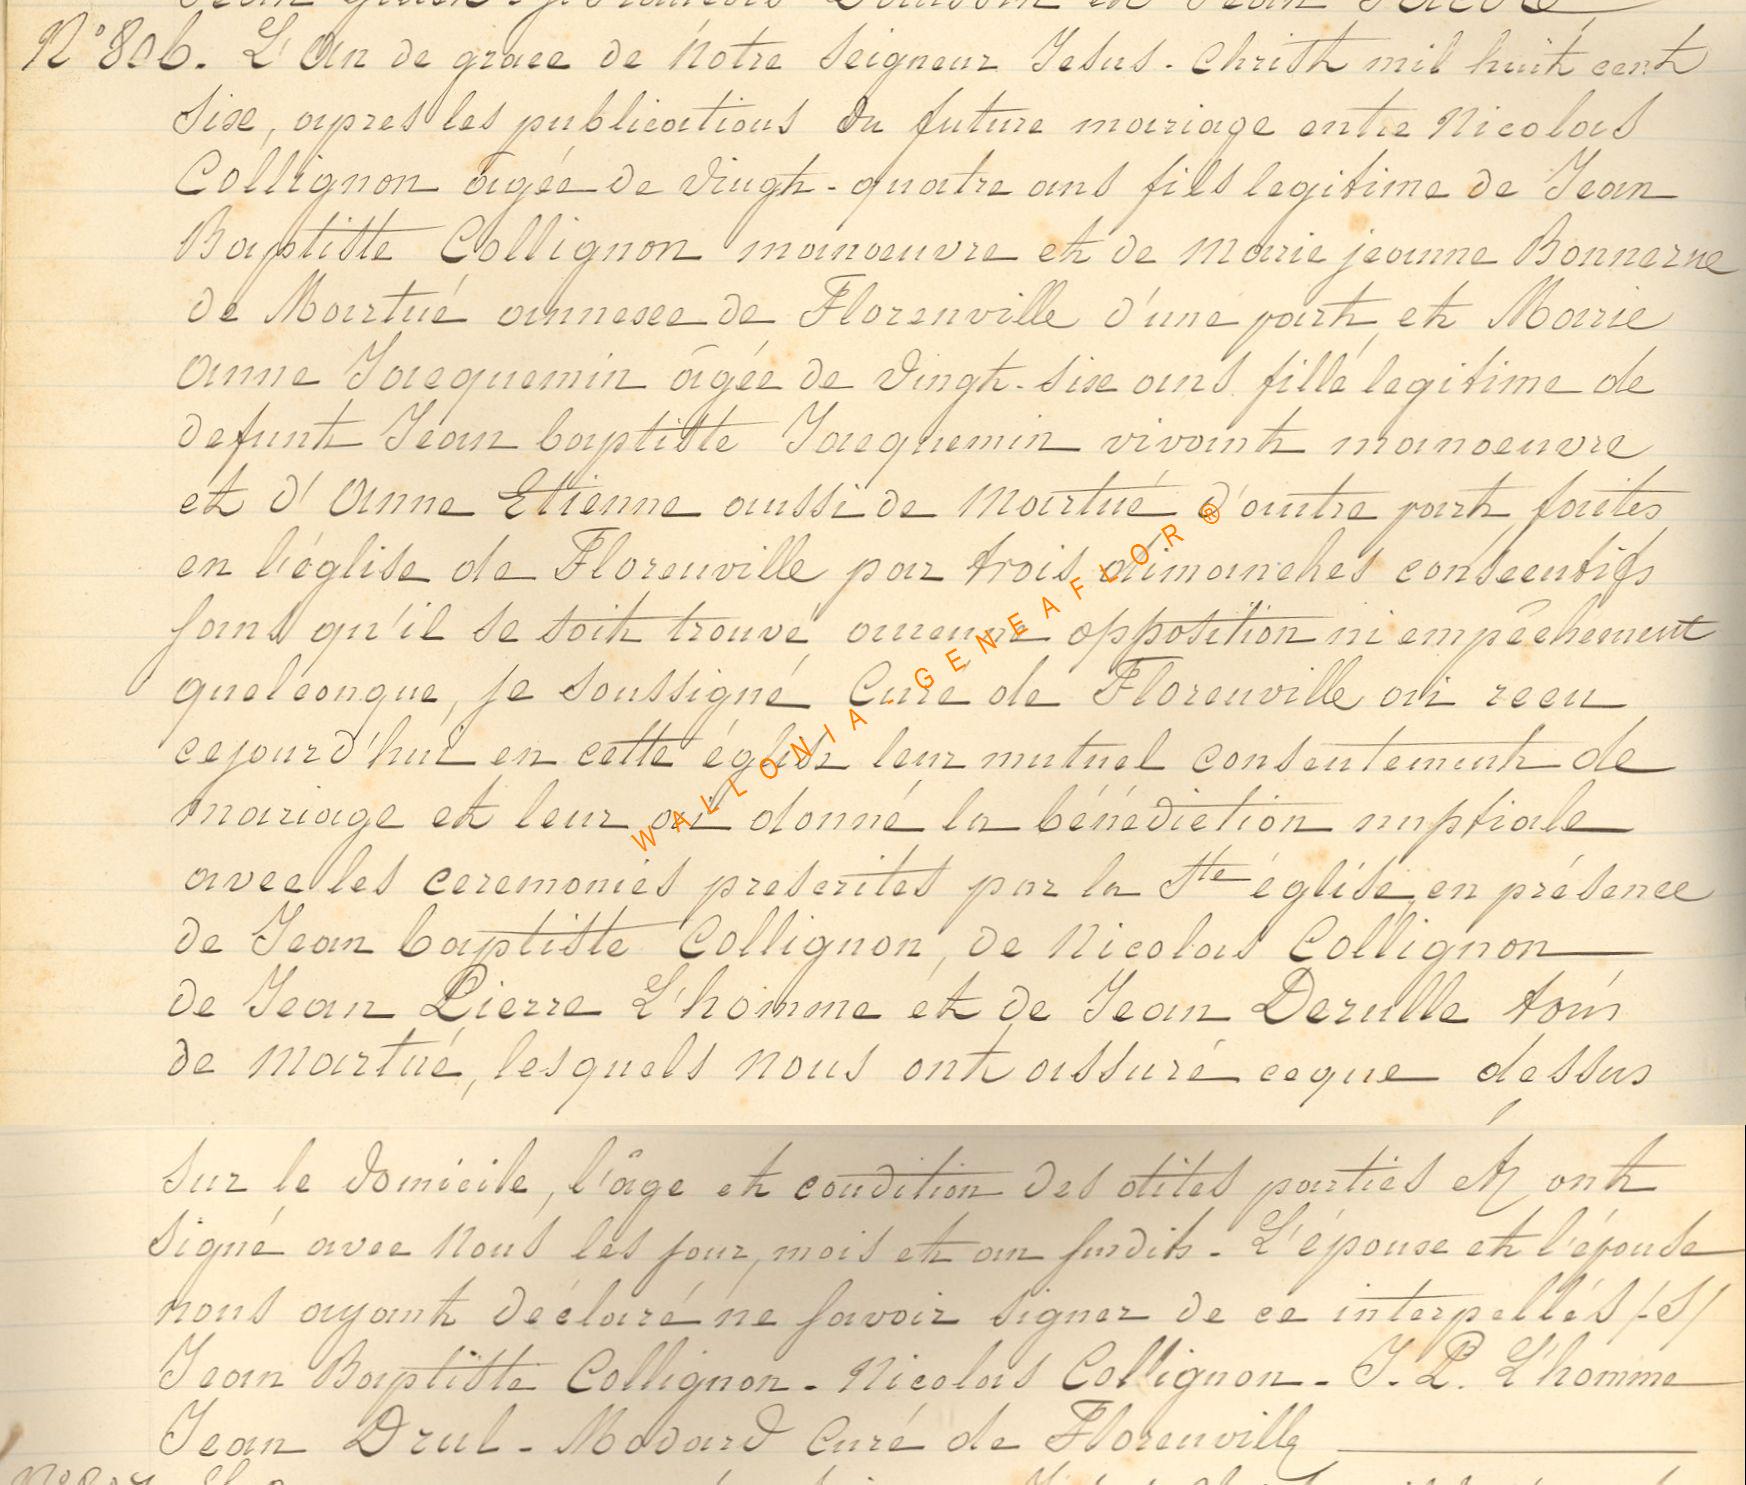 N° 806. L'An de grace de Notre Seigneur Jesus-Christ mil huit cent
six, apres les publications du future mariage entre Nicolas
Collignon âgée de vingt-quatre ans fils legitime de Jean
Baptiste Collignon manoeuvre et de Marie jeanne Bonnerne
de Martué annexee de Florenville d'une part et Marie
Anne Jacquemin âgée de vingt-six ans fille legitime de
defunt Jean baptiste Jacquemin vivant manoeuvre
et d'Anne Etienne aussi de Martué d'autre part, faites
en l'église de Florenville par trois dimanches consecutifs
sans qu'il se soit trouvé aucune opposition ni empêchement
quelconque, je soussigné Curé de Florenville ai recu
cejourd'hui en cette église leur mutuel consentement de
mariage et leur ai donné la bénédiction nuptiale
avec les ceremonies prescrites par la Ste église en présence
de Jean baptiste Collignon, de Nicolas Collignon
de Jean Pierre L'homme et de Jean Derulle tous
de Martué, lesquels nous ont assuré ceque dessus
sur le domicile, l'âge et condition des dites parties et ont
signé avec nous les jour, mois et an susdits. L'épouse et l'épouse
nous ayant déclaré ne savoir signer de ce interpellés /S/
Jean Baptiste Collignon - Nicolas Collignon - J. P. L'homme
Jean Drul - Modard Curé de Florenville
WALLONIA - GENEAFLOR ®